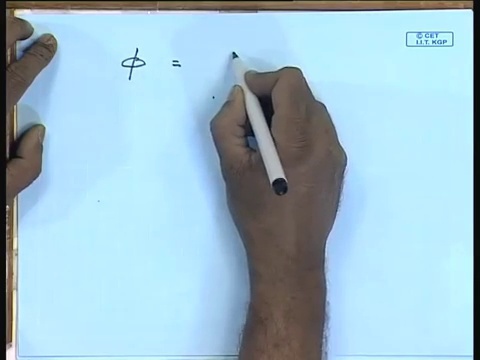 © CET
I.I.T. KGP
ϕ =